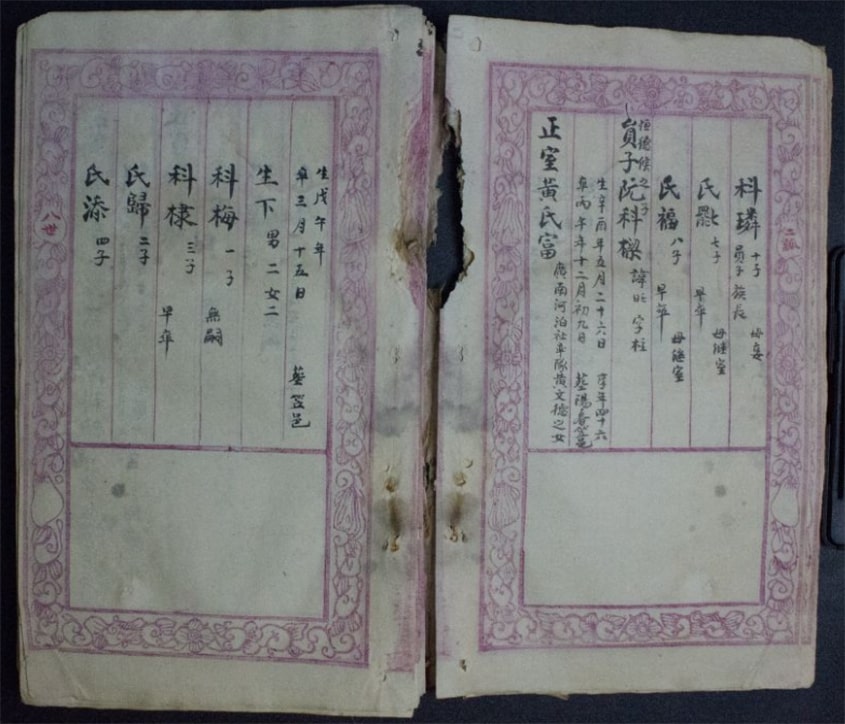 科璘 十子 員子 族長 母妾
氏 七子 早卒 母継室
氏福 八子 早卒 母継室
恒德候之子
員子阮科樑 諱旺 字柱
生辛酉年五月二十六日 享年四十六
卒丙午年十二月初九日 葬陽春
正室黃氏富 廣南河泊社率隊黃文德之女
生戊午年
卒三月十五日 葬笠邑
生下 男二女二
科梅 一子 無嗣
科棣 三子 早卒
氏歸 二子
氏添 四子
八世